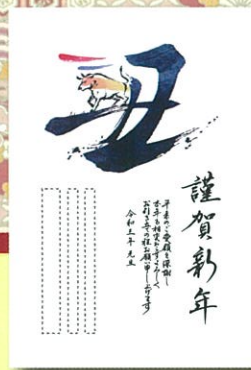 丑
謹賀新年
平素のご愛顧を深謝し
本年も相変わらずよろしく
お引き立ての程お願い申し上げます
令和三年 元旦